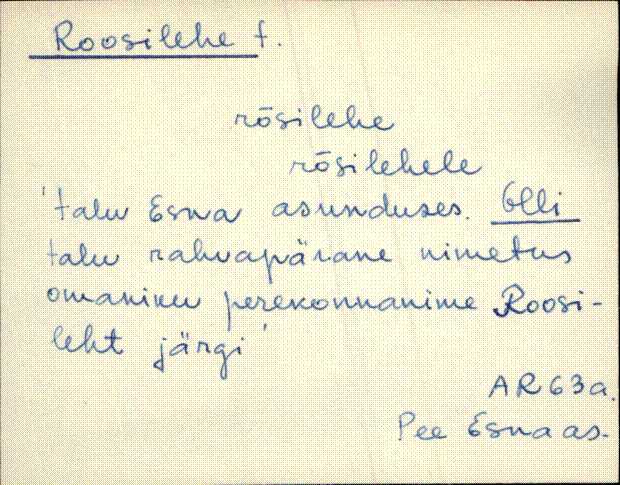 Roosilehe t.
rōsilehe
rōsilehele
'talu Esna asunduses. Olli
talu rahvapärane nimetus
omaniku perekonnanime Roosi-
leht järgi'
AR 63a.
Pee Esna as.